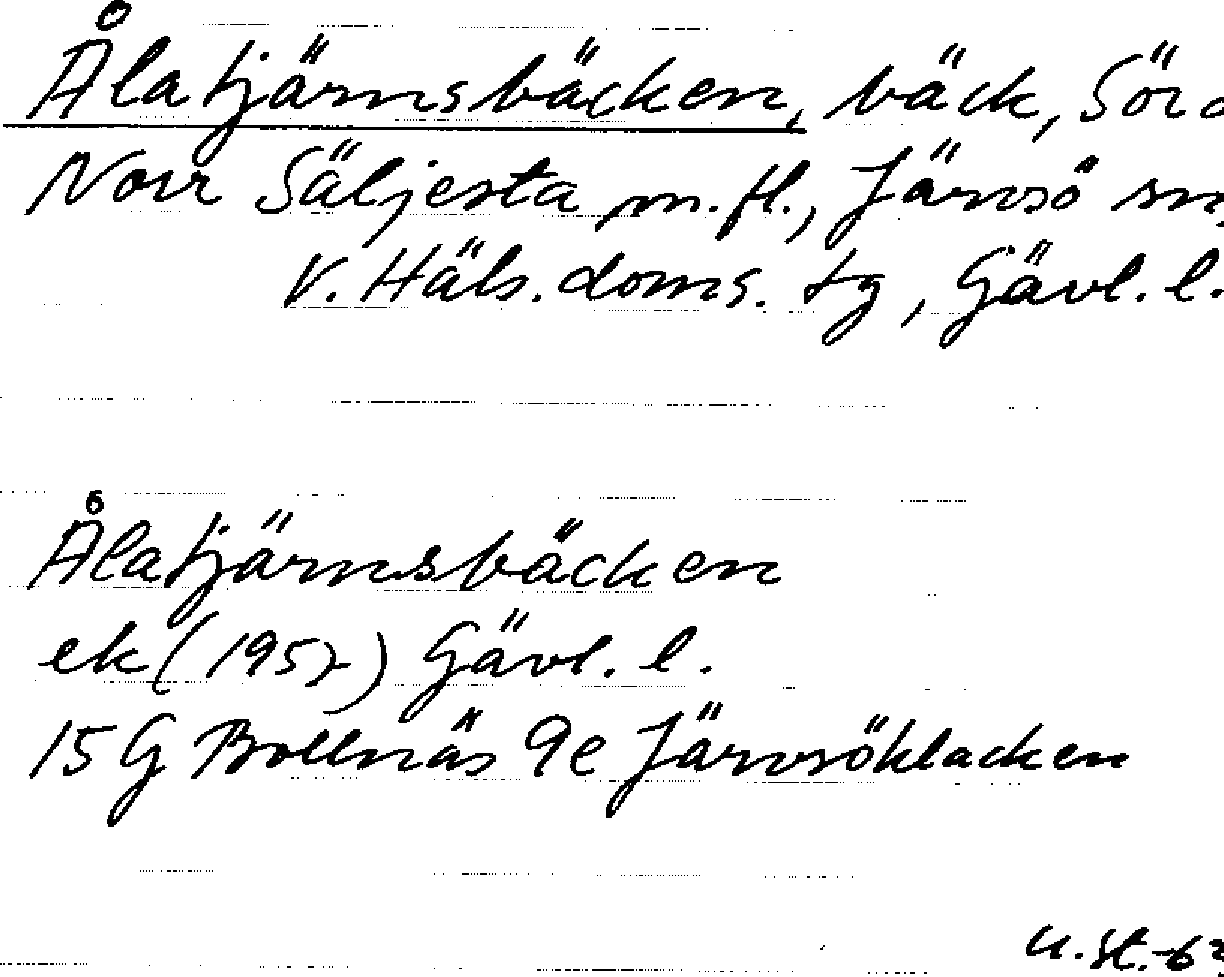 Ålatjärnsbäcken, bäck, Sör o
Norr Säljesta m.fl., Järvsö sn,
V. Häls. doms. tg, Gävl. l.
Ålatjärnsbäcken
ek (1957) Gävl. l.
15G Bollnäs 9e Järvsöklacken
U.St.-63